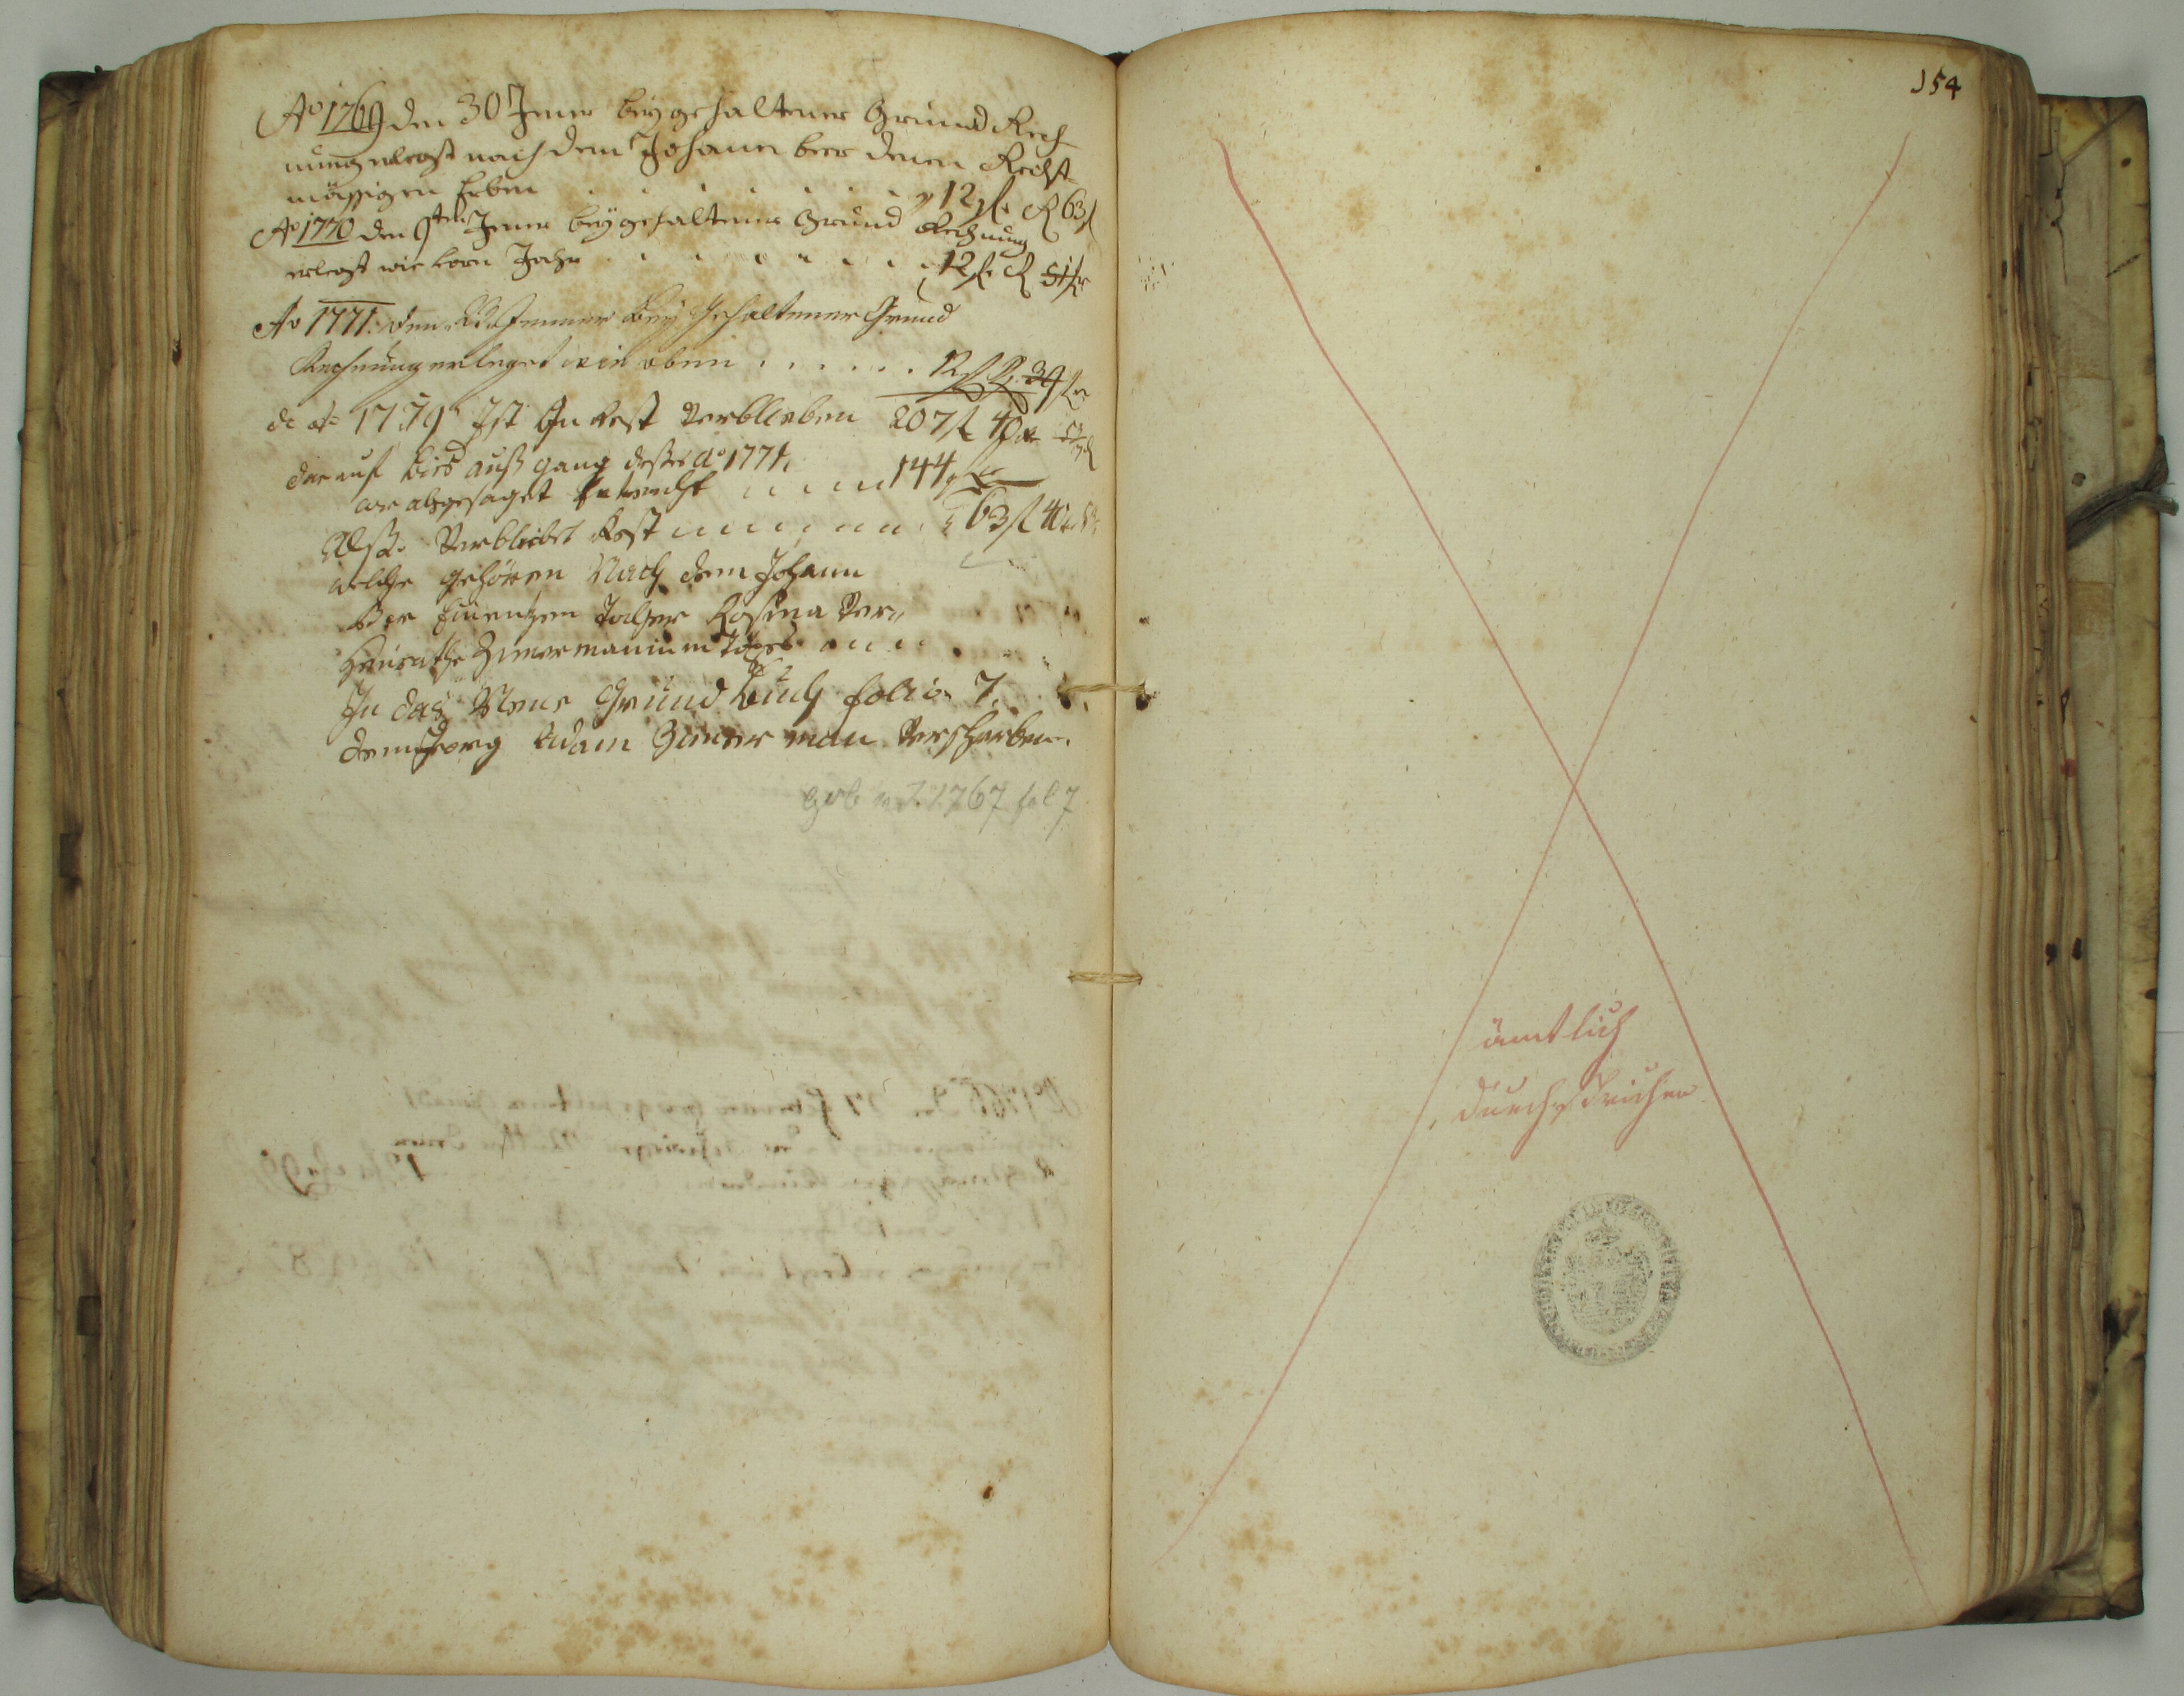 Ao 1769 den 30 Jener bey gehaltener Grund Rech
nung erlegt nach dem Johann beer denen Rechst
mässigen Erben . . . . . . . 12 fl. R 63 fl
Ao 1770 den 9ten Jener bey gehaltener Grund Rechnung
erlegt wie vorn Jahr . . . . . . . . 12 fl. R 51 fl
Ao 1771. den Jenner Bey Gehaltener Grund
Rechnung erleget wie oben . . . . . . 12 fl R. 39 fl
de Ao 1759 Ist In Rest Verblieben 207 fl 40
darauf bies auß gang dessen Ao 1771.
abgesaget 144 fl
Alßo Verbleibet Rest 63 fl 40
welche gehören Nach dem Johann
Ber Tochter Rosina Ver,,
Heurathe Zimermanin
In das Neue Grund Buch folio 7.
dem Georg Adam Zimer man Verschrieben.
1767 fol 7
154
ämtlich
durchstrichen